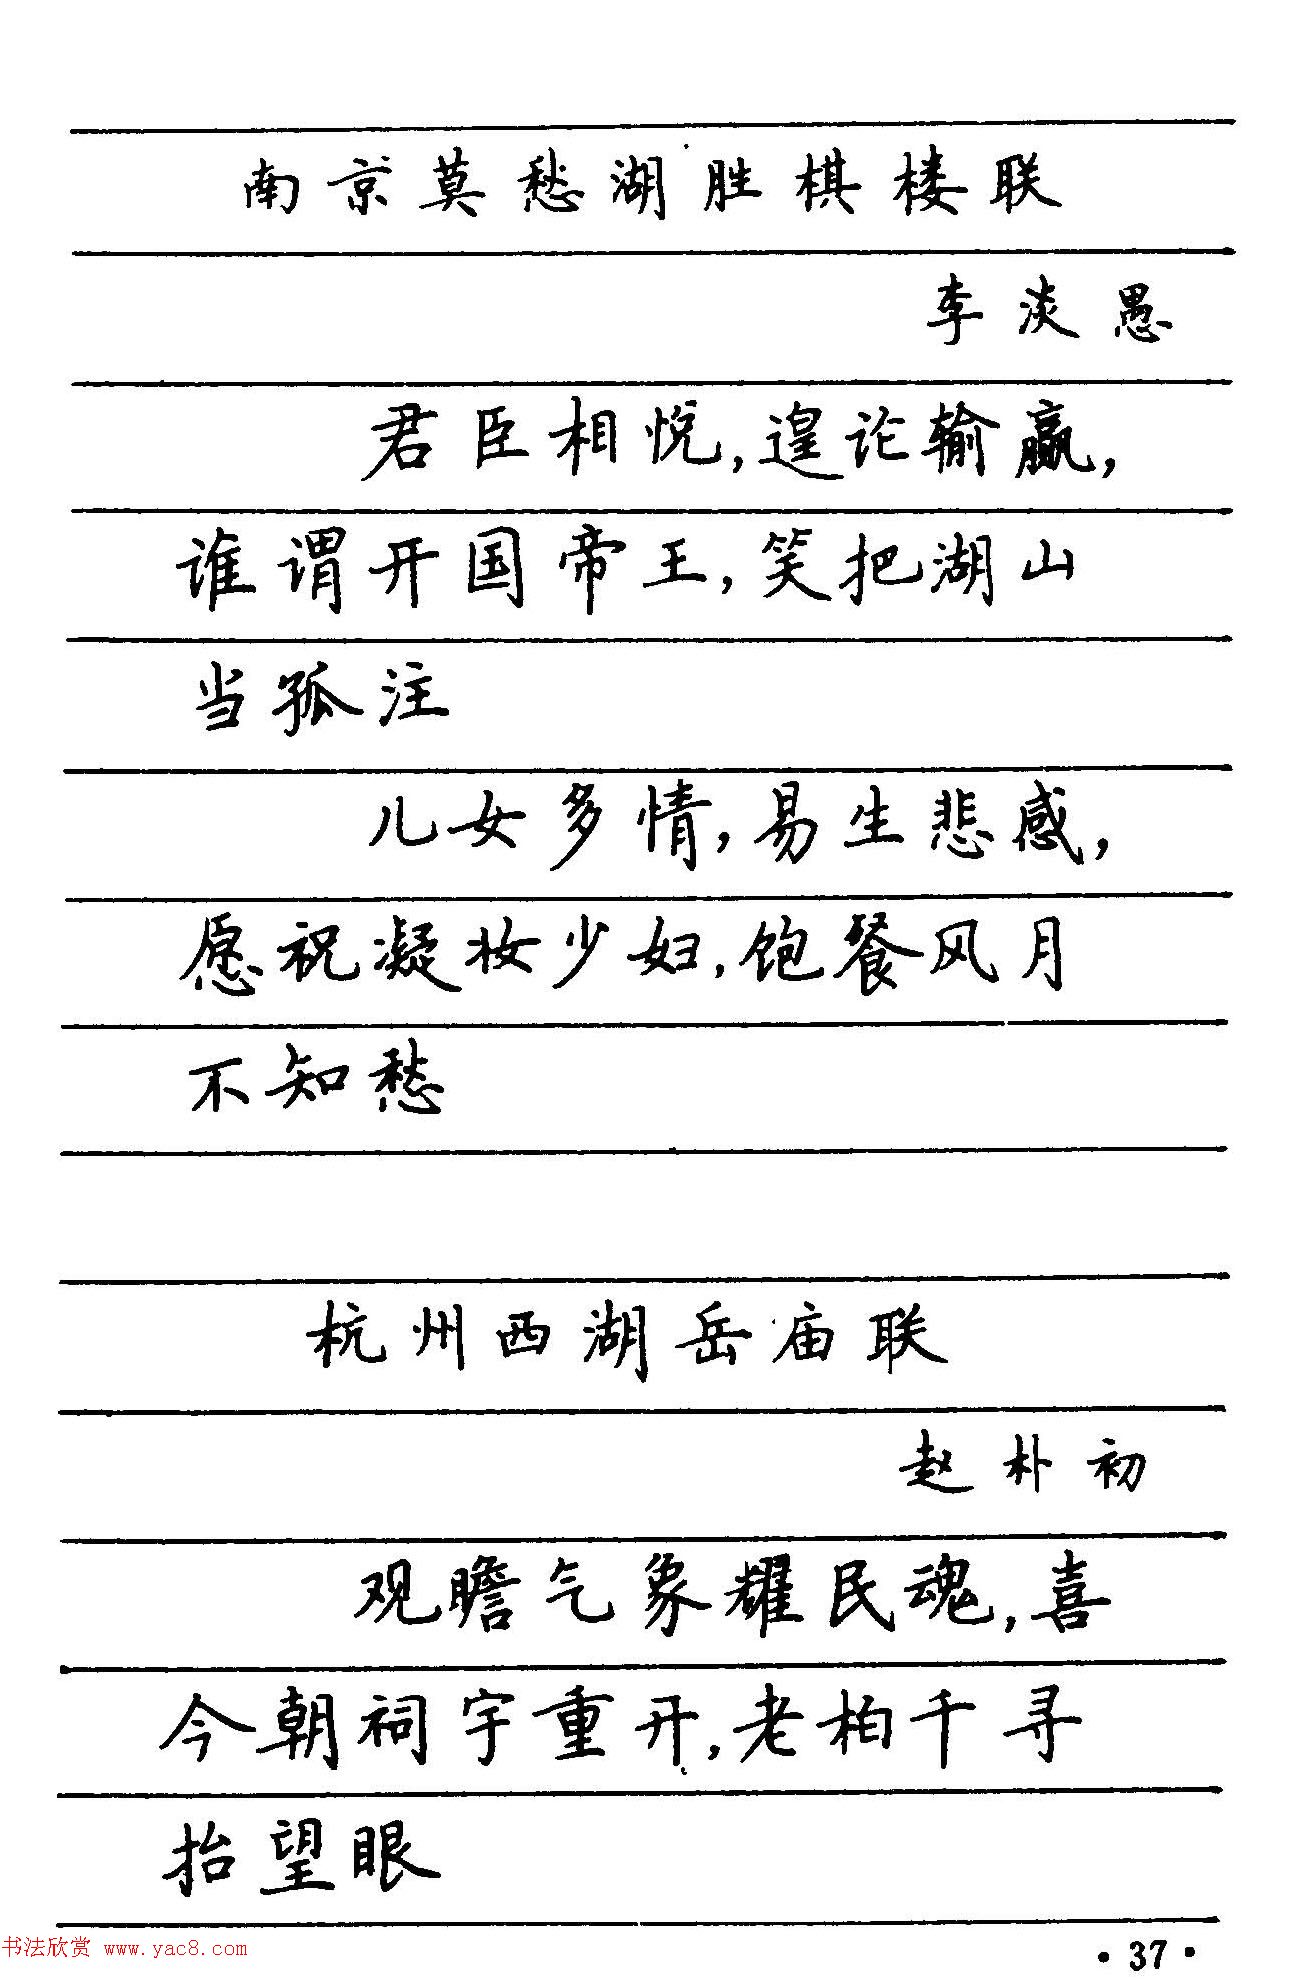 南京莫愁湖胜棋楼联
李淡愚
君臣相悦,遑论输赢,
谁谓开国帝王,笑把湖山
当孤注
儿女多情,易生悲感,
愿祝凝妆少妇,饱餐风月
不知愁
杭州西湖岳庙联
赵朴初
观瞻气象耀民魂,喜
今朝祠宇重开,老柏千寻
抬望眼
书法欣赏 www.yac8.com
·37·